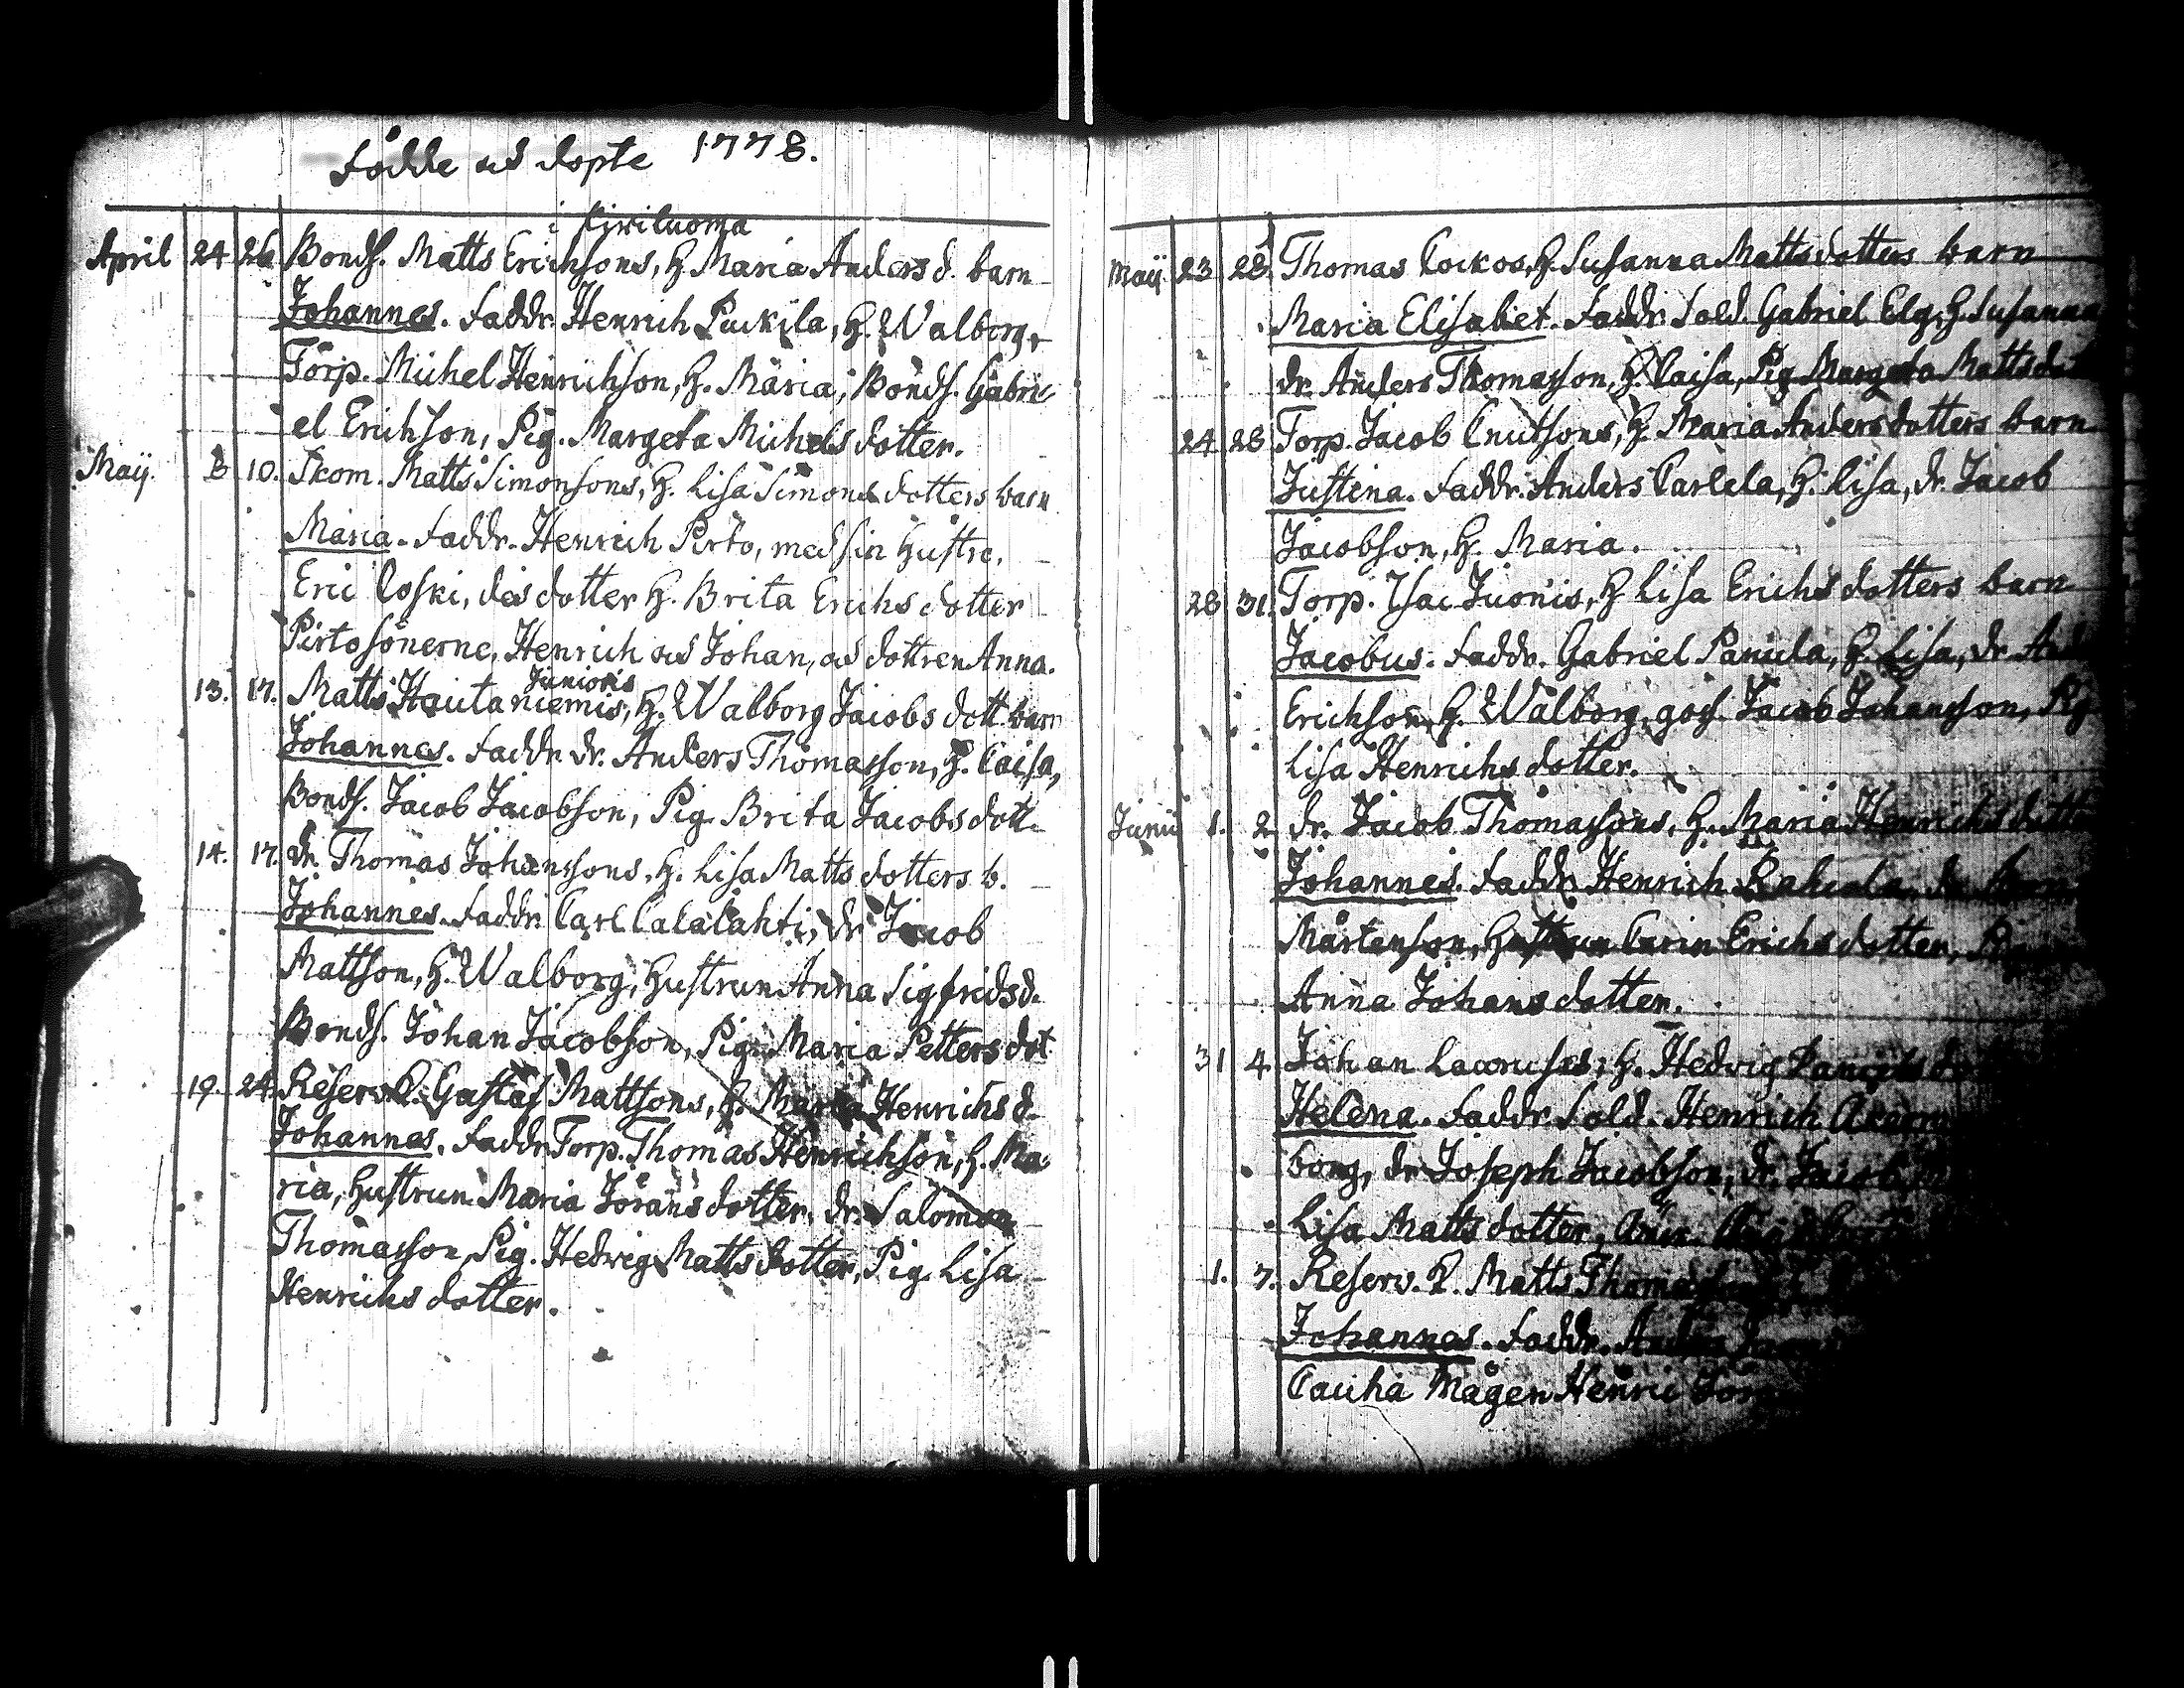 Födde och döpte 1778.
i Kiviluoma
April 24 26 Bonds. Matts Erichsons, H. Maria Anders d. barn
Johannes. Faddr. Henrich Puckila, H. Walborg,
Torp. Michel Henrichson, H. Maria, Bonds. Gabri-
el Erichson, Pig. Margeta Michels dotter.
Maij. 8 10. Skom. Matts Simonsons, H. Lisa Simons dotters barn
Maria. Faddr. Henrich Pirto, med sin Hustro,
Eric Coski, des dotter H. Brita Erichs dotter
Pirto sönerne, Henrich och Johan, och dottren Anna.
Junioris
13. 17. Matts Hautaniemis, H. Walborg Jacobs dott. barn
Johannes. Faddr. dr. Anders Thomasson, H. Caisa,
Bonds. Jacob Jacobson, Pig. Brita Jacobs dott.
14. 17. dr. Thomas Johanssons, H. Lisa Matts dotters b.
Johannes. Faddr. Carl Calalahti, dr. Jacob
Mattson, H. Walborg, Hustrun Anna Sigfrids d.
Bonds. Johan Jacobson, Pig. Maria Petters dot.
19. 24. Reserv K. Gustaf Mattsons, H. Maria Henrichs d.
Johannes. Faddr. Torp. Thomas Henrichson, H. Ma-
ria, Hustrun Maria Jörans dotter, dr. Salomon
Thomasson, Pig. Hedvig Matts dotter, Pig. Lisa
Henrichs dotter.
Maij 23 28. Thomas Cockos, H. Susanna Matts dotters barn
Maria Elisabet. Faddr. Sold. Gabriel Elg, H. Susanna
dr. Anders Thomasson, H. Caisa, Pig. Margeta Matts
24 28 Torp. Jacob Cnutsons, H. Maria Anders dotters barn
Justina. Faddr. Anders Carlela, H. Lisa, dr. Jacob
Jacobson, H. Maria.
28 31. Torp. Isac Juonis, H. Lisa Erichs dotters barn
Jacobus. Faddr. Gabriel Panula, H. Lisa, dr.
Erichson, H. Walborg, goss. Jacob Johansson,
Lisa Henrichs dotter.
Junii 1. 2 dr. Jacob Thomassons, H. Maria Henrichs
Johannes. Faddr. Henrich dr.
Mårtenson, Hustrun Carin Erichs dotter,
Anna Johans dotter.
31 4. Johan H. Hedvig
Helena. Faddr. Sold. Henrich
borg, dr. Joseph Jacobson, dr. Jacob
Lisa Matts dotter,
1. 7. Reserv. K. Matts
Johannes. Faddr.
Mågen Henric